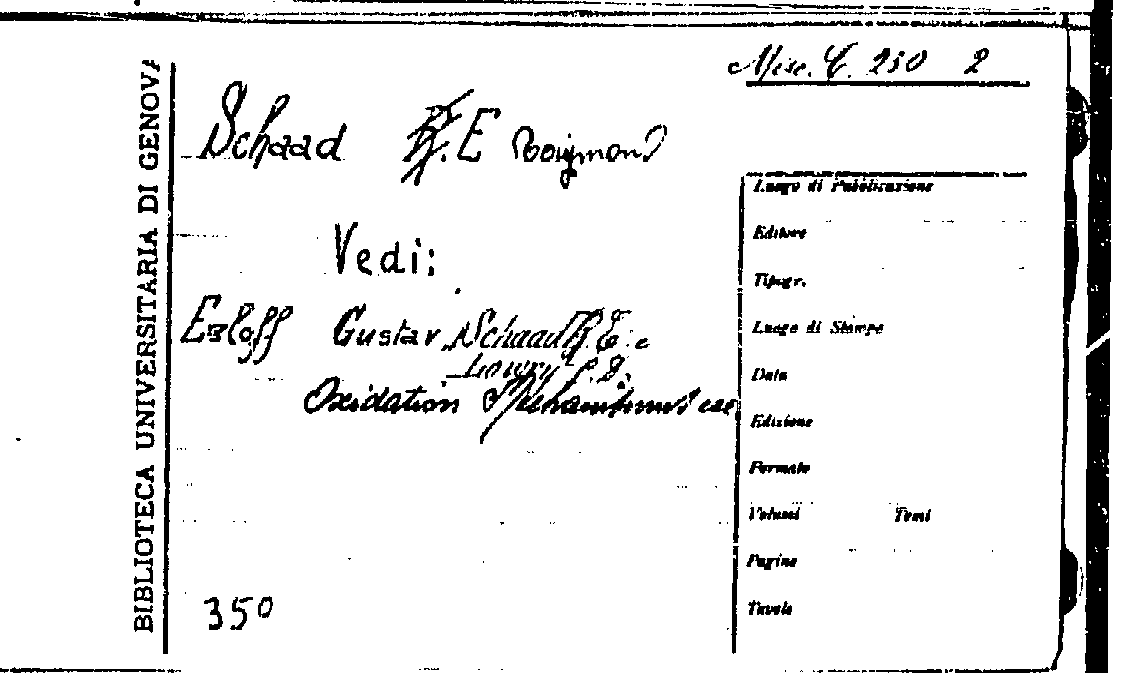 Misc. C. 250 2
BIBLIOTECA UNIVERSITARIA DI GENOVA
Schaad R. E Raymond
Vedi:
Egloff Gustav, Schaad R. E. e
Lowry C. D.
Oxidation
Luogo di Pubblicazione
Editore
Tipogr.
Luogo di Stampa
Data
Edizione
Formato
Volumi Tomi
Pagine
Tavole
350